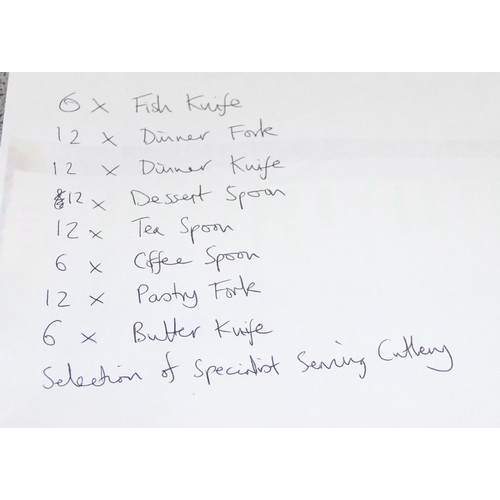 6 x Fish Knife
12 x Dinner Fork
12 x Dinner Knife
12 x Dessert Spoon
12 x Tea Spoon
6 x Coffee Spoon
12 x Pastry Fork
6 x Butter Knife
Selection of Specialist Serving Cutlery